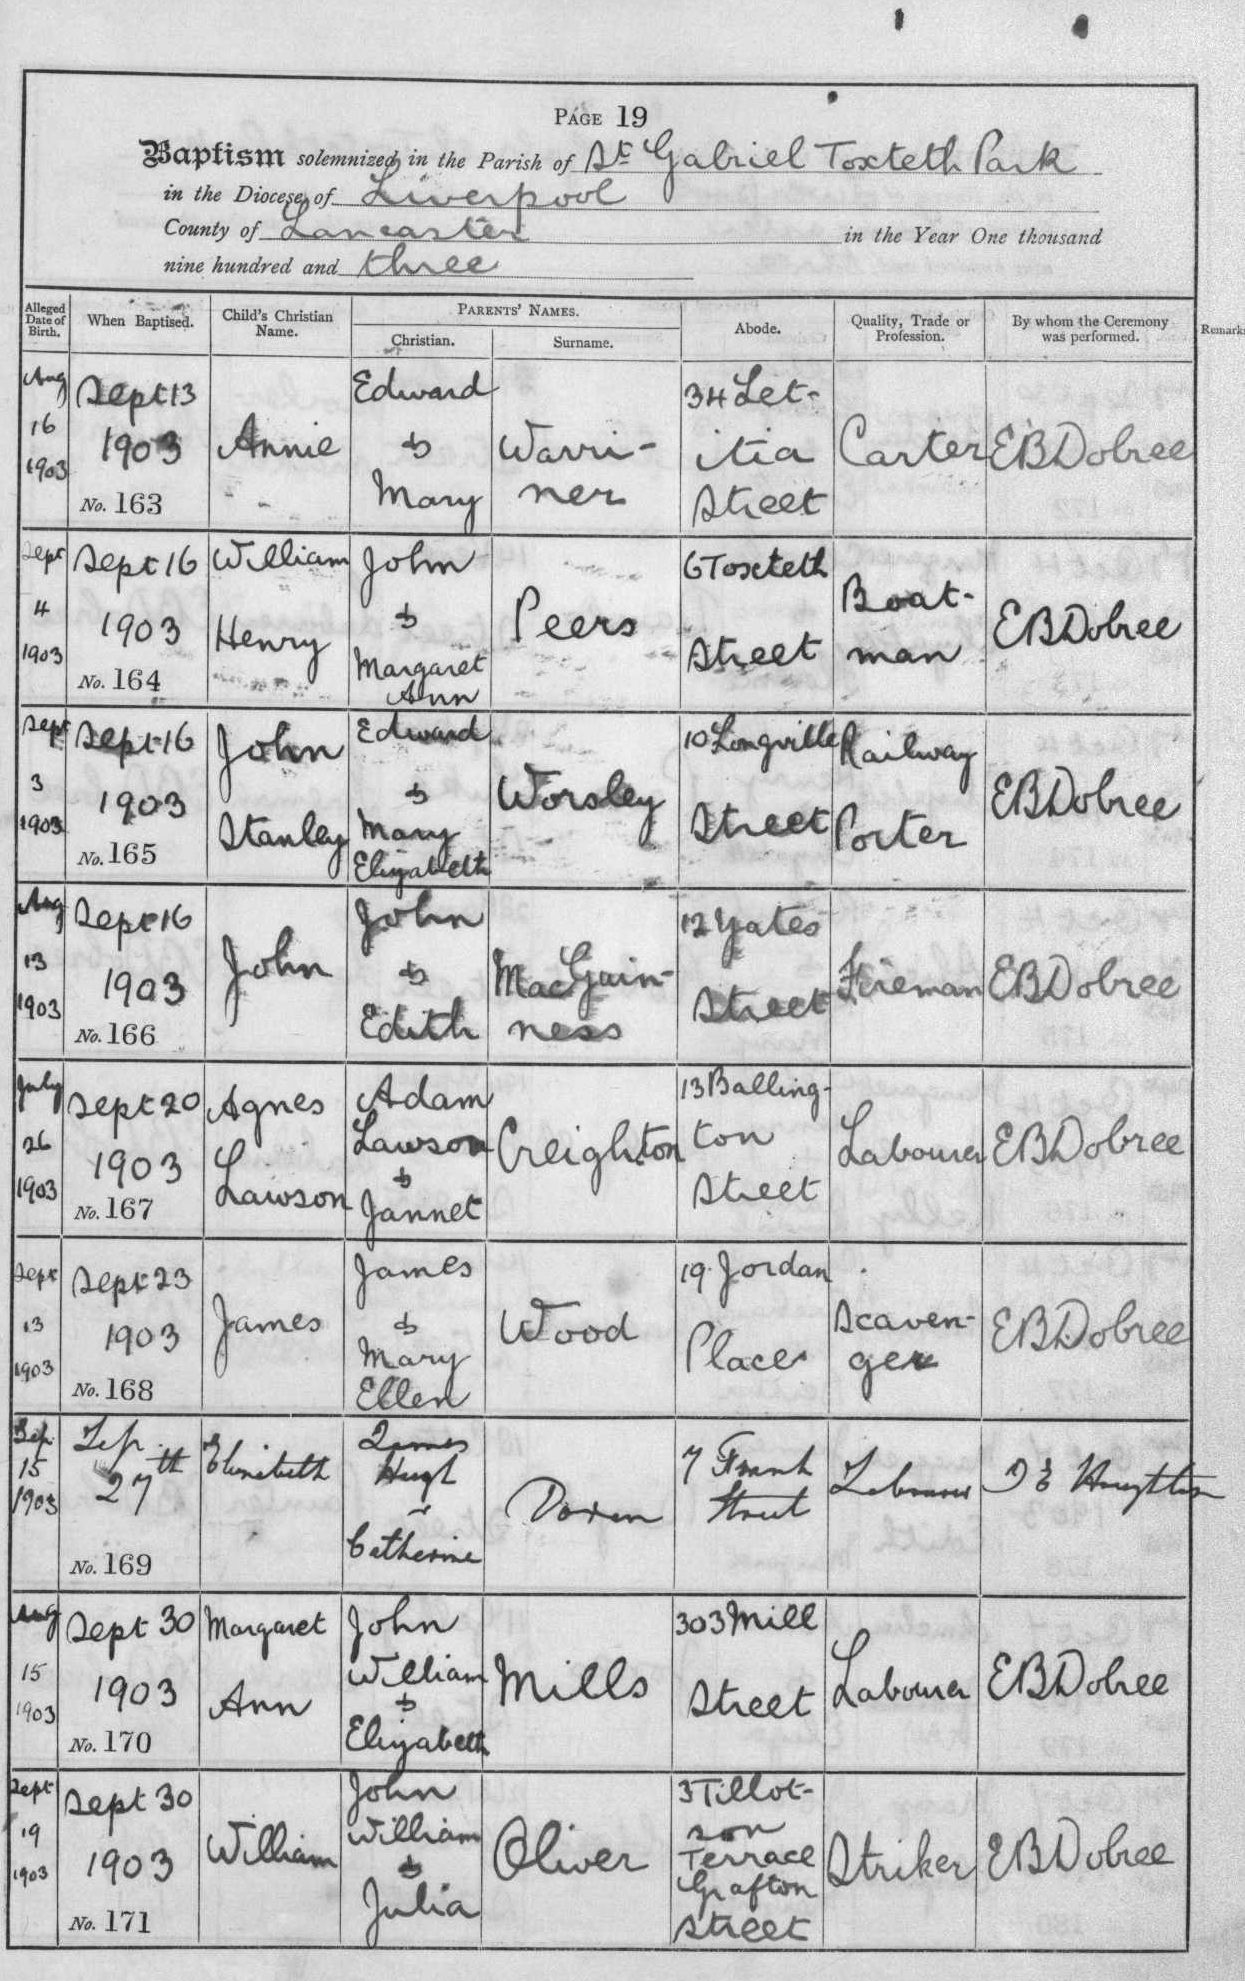 PAGE 19
Baptism solemnized in the Parish of St Gabriel Toxteth Park
in the Diocese of Liverpool
County of Lancaster in the Year One thousand
nine hundred and three
Alleged Date of Birth.
When Baptised.
Child's Christian Name.
PARENTS' NAMES.
Christian.
Surname.
Abode.
Quality, Trade or Profession.
By whom the Ceremony was performed.
Remarks
Aug
16
1903
Sept 13
1903
No. 163
Annie
Edward
&
Mary
Warri-
ner
34 Let-
itia
Street
Carter
EBDobree
Sept
4
1903
Sept 16
1903
No. 164
William
Henry
John
&
Margaret
Ann
Peers
6 Toxteth
Street
Boat-
man
EBDobree
Sept
3
1903
Sept 16
1903
No. 165
John
Stanley
Edward
&
Mary
Elizabeth
Worsley
10 Longville
Street
Railway
Porter
EBDobree
Aug
13
1903
Sept 16
1903
No. 166
John
John
&
Edith
MacGuin-
ness
12 Yates
Street
Fireman
EBDobree
July
26
1903
Sept 20
1903
No. 167
Agnes
Lawson
Adam
Lawson
&
Jannet
Creighton
13 Balling-
ton
Street
Labourer
EBDobree
Sept
13
1903
Sept 23
1903
No. 168
James
James
&
Mary
Ellen
Wood
19 Jordan
Place
Scaven-
ger
EBDobree
Sep.
15
1903
Sep.
27th
No. 169
Elizabeth
James
Hugh
&
Catherine
Doran
7 Frank
Street
Labourer
Aug
15
1903
Sept 30
1903
No. 170
Margaret
Ann
John
William
&
Elizabeth
Mills
303 Mill
Street
Labourer
EBDobree
Sept
19
1903
Sept 30
1903
No. 171
William
John
William
&
Julia
Oliver
3 Tillot-
son
Terrace
Grafton
Street
Striker
EBDobree